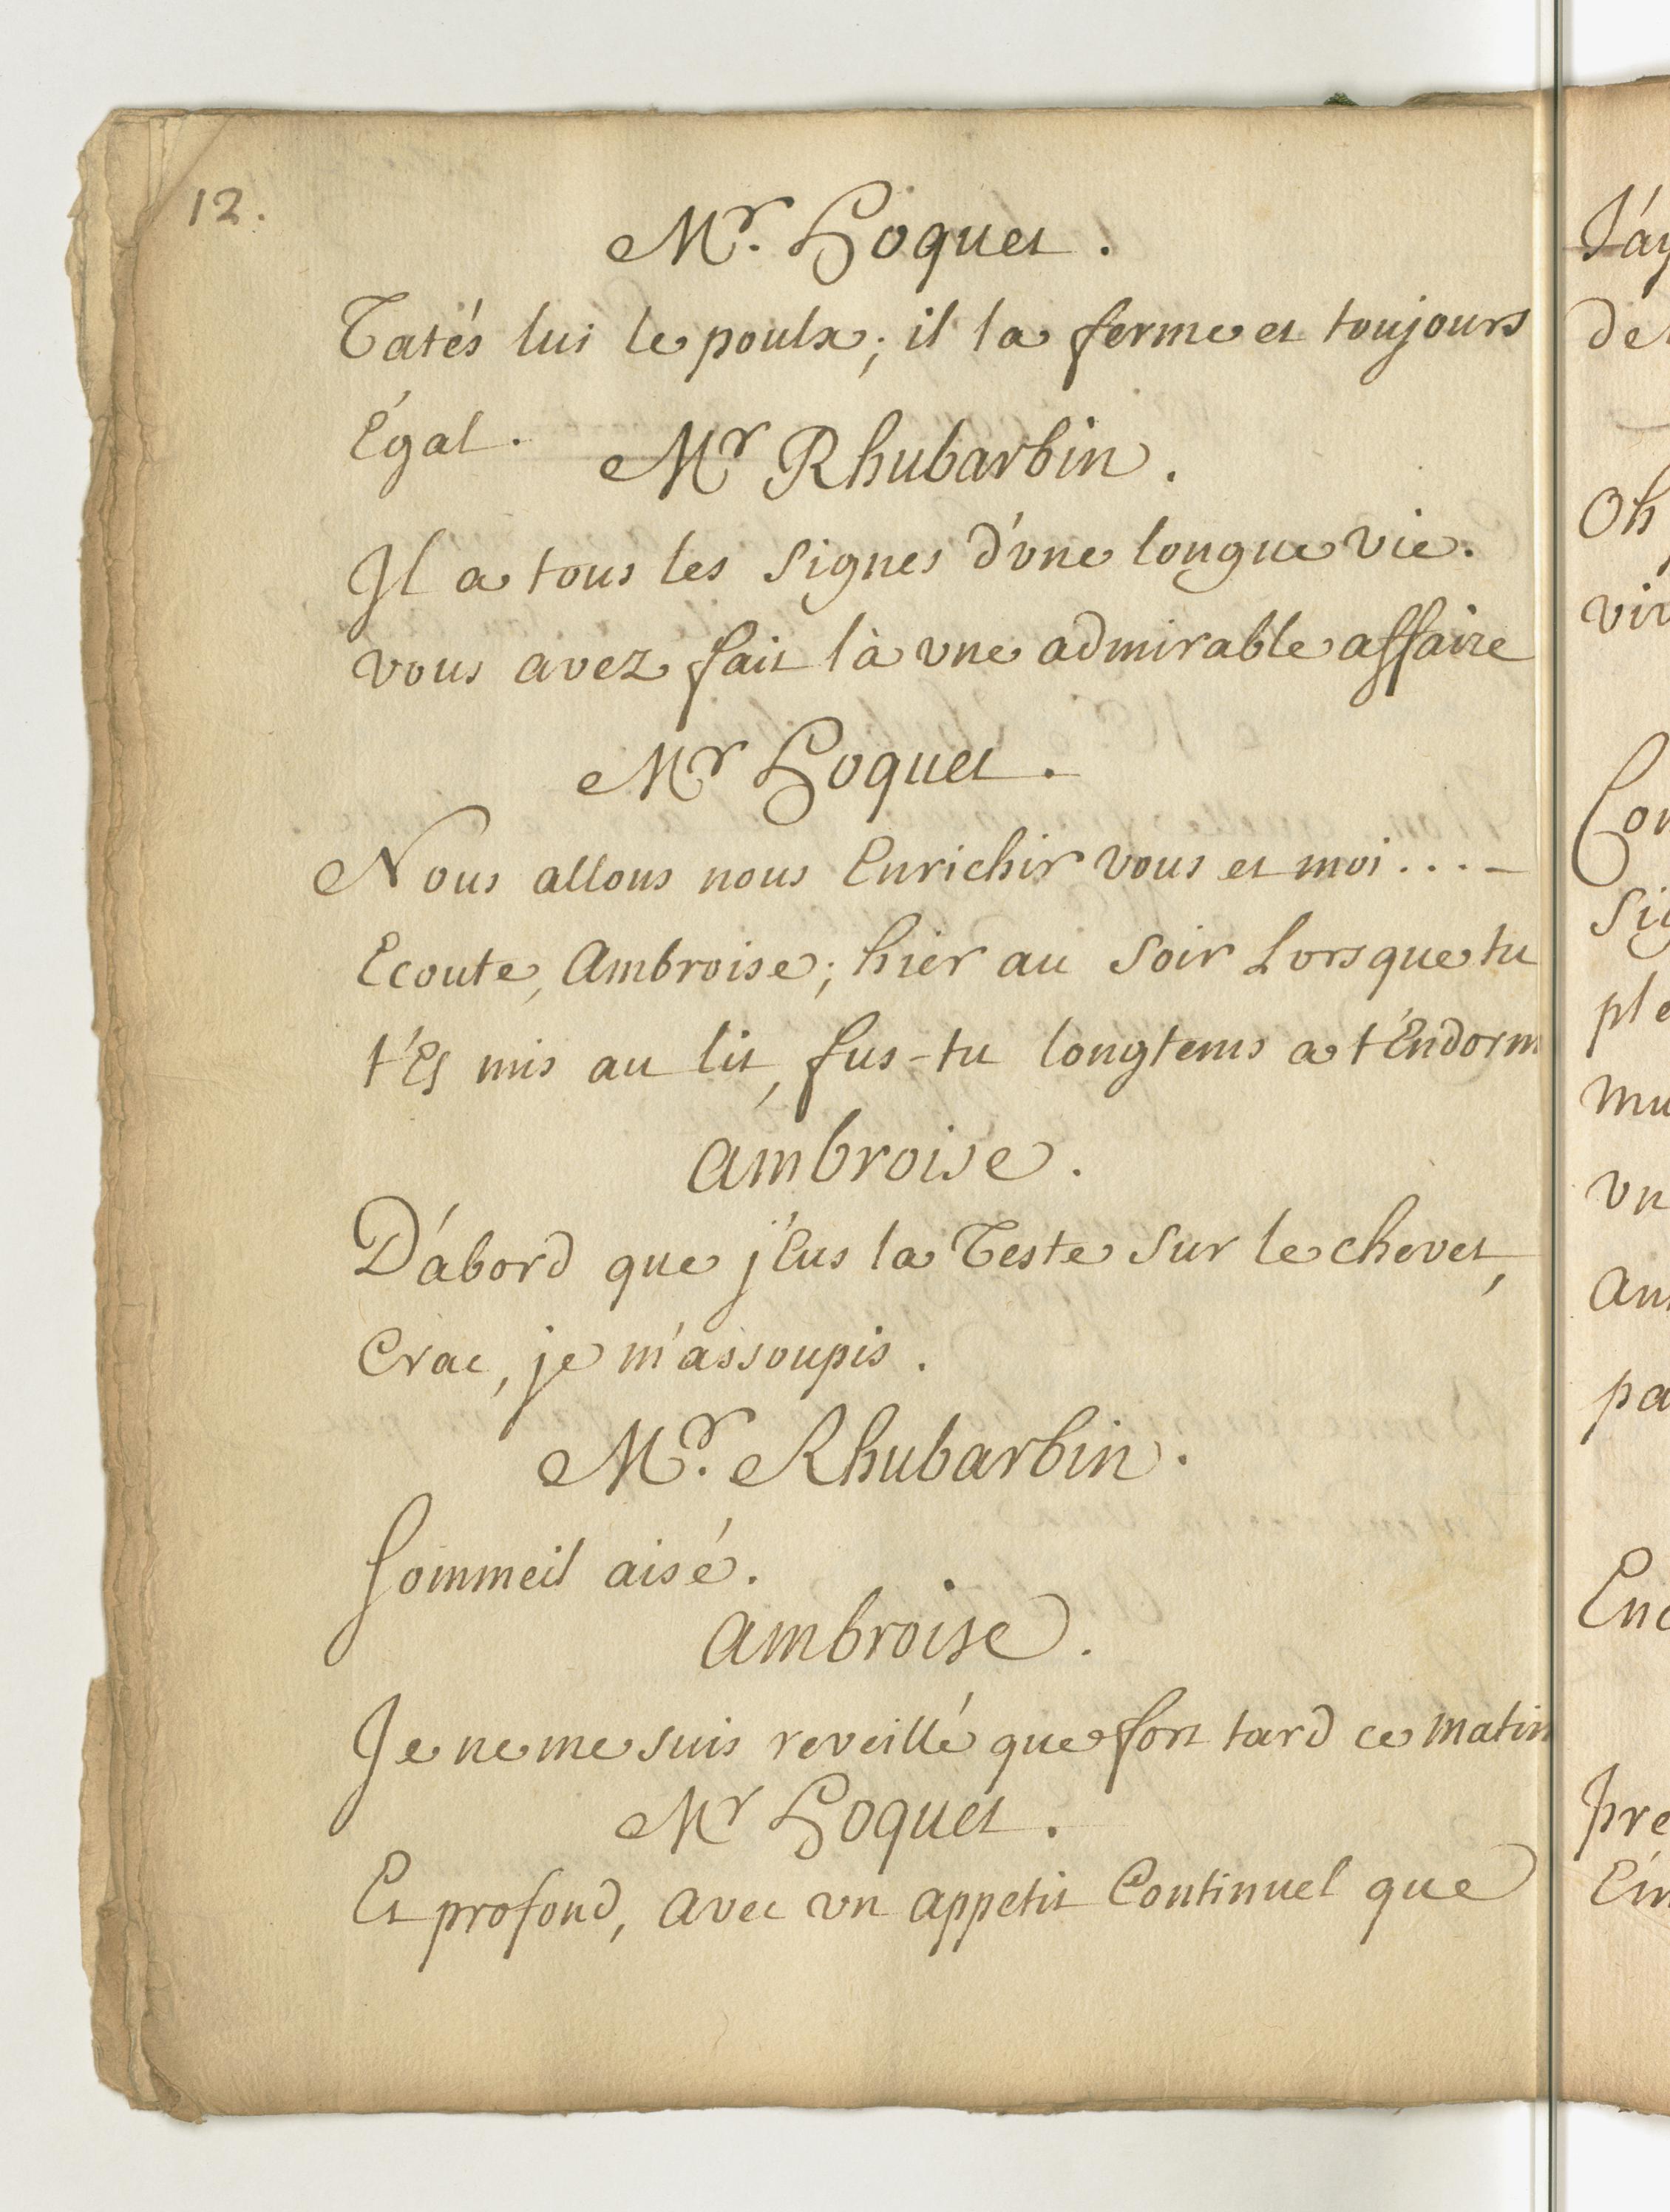 12.
Mr. Hoquet.
Tatés lui le poulx; il la ferme et toujours
Égal.
Mr Rhubarbin.
Il a tous les signes d'une longue vie.
vous avez fait là vne admirable affaire
Mr Hoquet.
Nous allons nous Enrichir vous et moi....-
Ecoute, Ambroise; hier au soir Lorsque tu
t'Es mis au lit, fus-tu longtems a t'Endorm
Ambroise.
D'abord que j'Eus la Teste sur le chevet,
Crac, je m'assoupis.
Mr. Rhubarbin.
Sommeil aisé.
Ambroise.
Je ne me suis reveillé que fort tard ce matin
Mr Hoquet.
Et profond, avec vn appetit Continuel que
J'ay
de
Oh
viv
Con
sig
ple
mu
vn
pa
Enc
pre